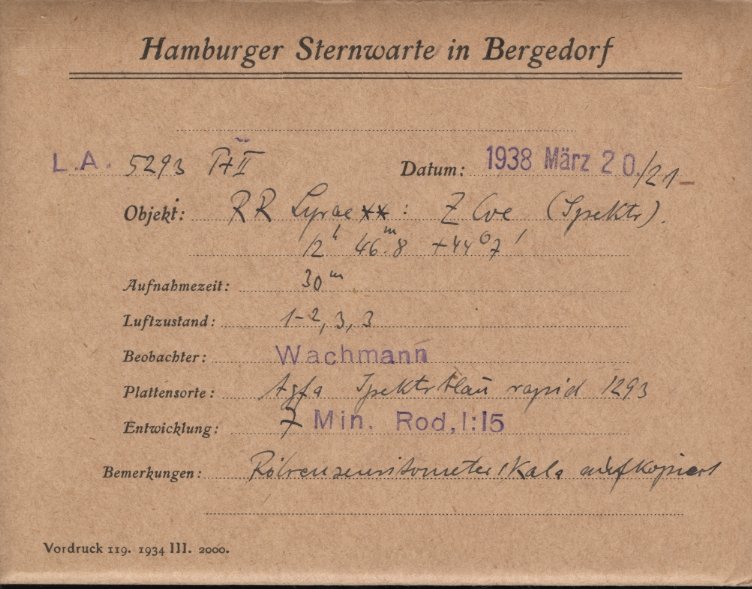 Hamburger Sternwarte in Bergedorf
L.A. 5293 Pr II Datum: 1938 März 20./21
Objekt: RR Lyrae xx : Z CVe (Spektr).
12h 46m.8 +44°7'
Aufnahmezeit: 30m
Luftzustand: 1-2, 3, 3
Beobachter: Wachmann
Plattensorte: Agfa Spektr blau rapid 1293
Entwicklung: 7 Min. Rod, 1:15
Bemerkungen: Röhrensensitometerskala aufkopiert
Vordruck 119. 1934 III. 2000.